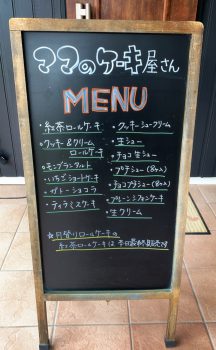 ママのケーキ屋さん
MENU
・紅茶ロールケーキ
・クッキー&クリーム
ロールケーキ
・モンブランタルト
・いちごショートケーキ
・ガトーショコラ
・ティラミスケーキ
・クッキーシュークリーム
・生シュー
・チョコ生シュー
・プチシュー(8ヶ入)
・チョコプチシュー(8ヶ入)
・プレーンシフォンケーキ
・生クリーム
☆日替りロールケーキの
紅茶ロールケーキは 本日最終販売です